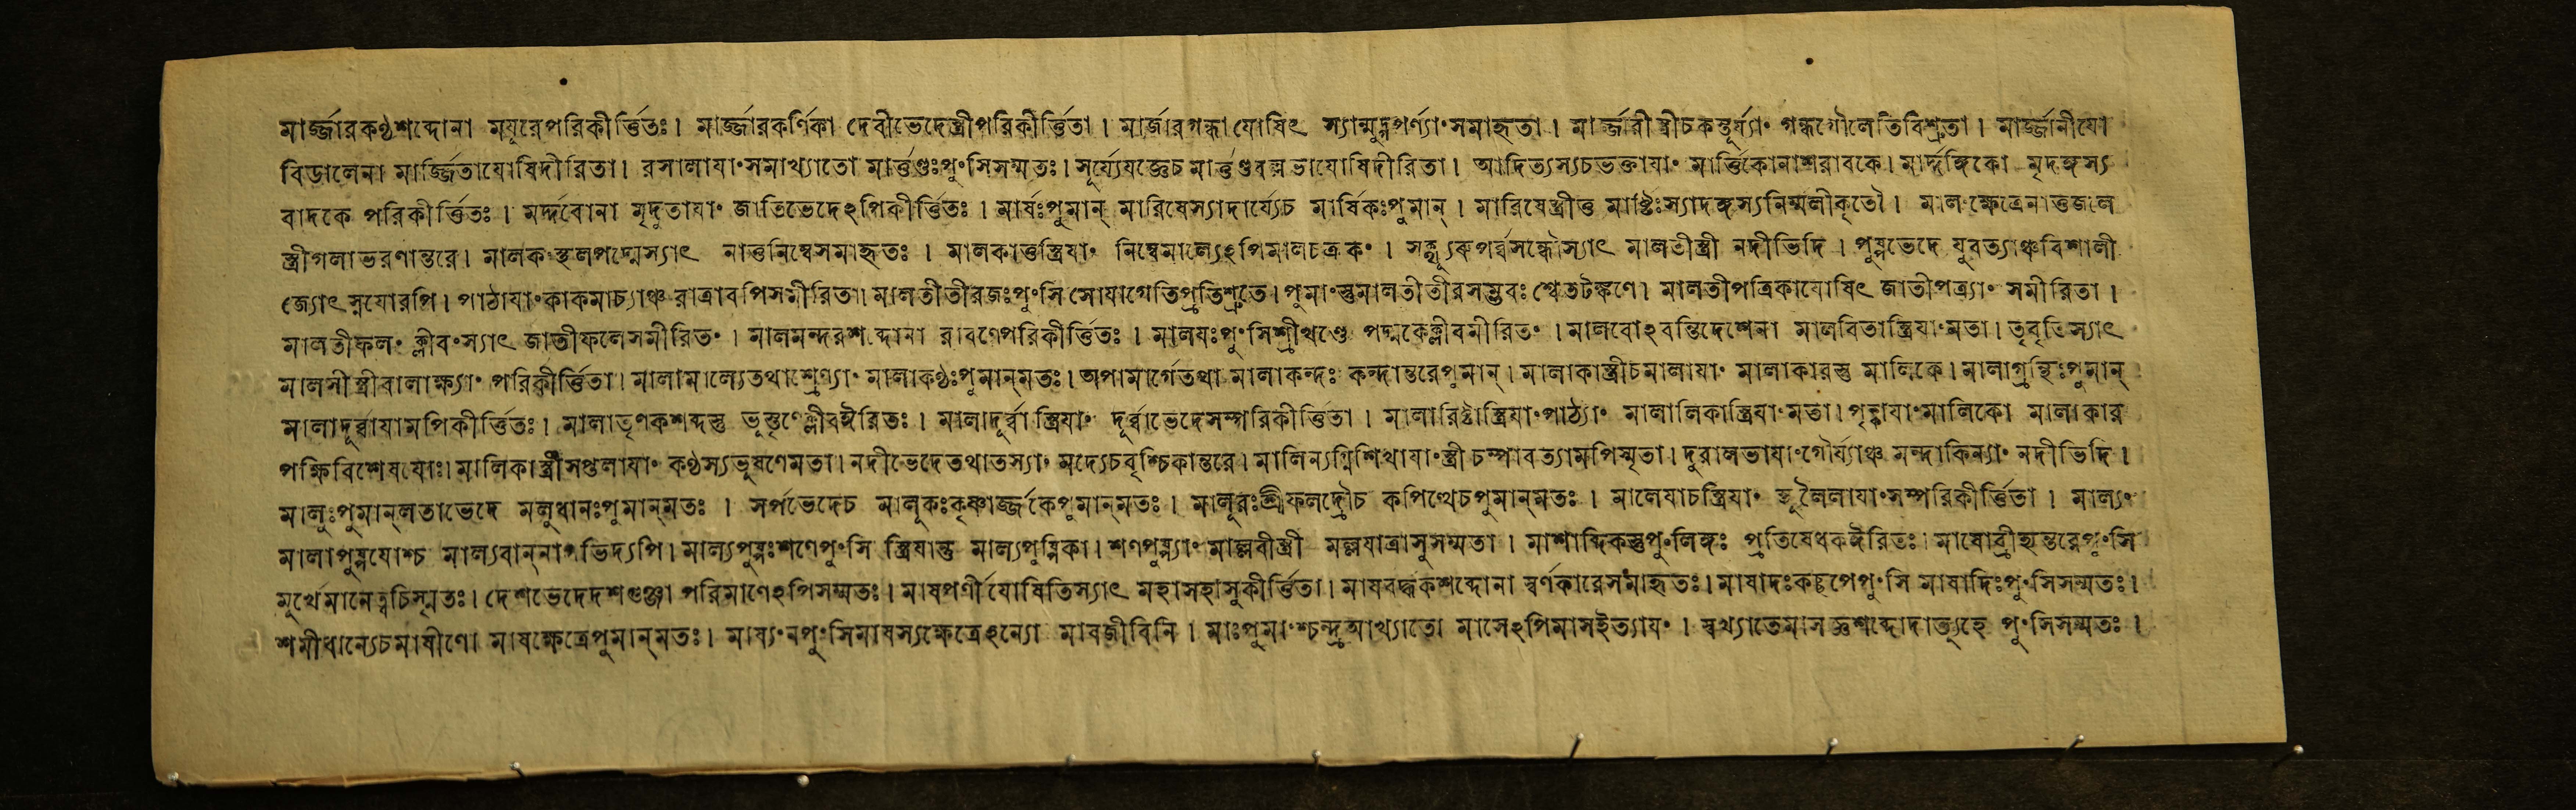 মার্জ্জারকণ্ঠশব্দোনা ময়ূরেপরিকীর্ত্তিতঃ। মার্জ্জারকর্ণিকা দেবীভেদেস্ত্রীপরিকীর্ত্তিতা। মার্জারগন্ধাযোষিৎ স্যান্মুদ্গপর্ণ্যাং সমাহৃতা। মার্জ্জারী স্ত্রীচকস্তূর্য্যাং গন্ধগৌলেতিবিশ্রুতা। মার্জ্জানীযো
বিডালেনা মার্জ্জিতাযোষিদীরিতা। রসালাযাং সমাখ্যাতো মার্ত্তণ্ডঃপুংসিসম্মতঃ। সূর্য্যেযজ্ঞেচ মার্ত্তণ্ডবল্লভাযোষিদীরিতা। আদিত্যস্যচভক্তাযাং মার্ত্তিকোনাশরাবকে। মার্দ্দঙ্গিকো মৃদঙ্গস্য
বাদকে পরিকীর্ত্তিতঃ। মর্দ্দবোনা মৃদুতাযাং জাতিভেদেঽপিকীর্ত্তিতঃ। মার্ষঃপুমান্ মারিষেস্যাদার্য্যেচ মার্ষিকঃপুমান্। মারিষেস্ত্রীত্ত মার্ষ্টিঃস্যাদঙ্গস্যনির্ম্মলীকৃতৌ। মালংক্ষেত্রেনাত্তজলে
স্ত্রীগলাভরণান্তরে। মালকংস্থলপদ্মেস্যাৎ নাত্তনিম্বেসমাহৃতঃ। মালকাত্তস্ত্রিযাং নিম্বেমাল্যেঽপিমালচক্রকং। সক্থ্যূরুপর্ব্বসন্ধৌস্যাৎ মালতীস্ত্রী নদীভিদি। পুষ্পভেদে যুবত্যাঞ্চবিশালী
জ্যোৎস্নযোরপি। পাঠাযাং কাকমাচ্যাঞ্চ রাত্রাবপিসমীরিতা। মালতীতীরজঃপুংসি সোযাগেতিপ্রতিশ্রুতে। পুমাংস্তুমালতীতীরসম্ভবঃ শ্বেতটঙ্কণে। মালতীপত্রিকাযোষিৎ জাতীপত্র্যাং সমীরিতা।
মালতীফলং ক্লীবংস্যাৎ জাতীফলেসমীরিতং। মালমন্দরশব্দোনা রাবণেপরিকীর্ত্তিতঃ। মালযঃপুংসিশ্রীখণ্ডে পদ্মকেক্লীবমীরিতং। মালবোঽবন্তিদেশেনা মালবিতাস্ত্রিযাংমতা। তৃবৃতিস্যাৎ
মালসী স্ত্রীবালাক্ষ্যাং পরিকীর্ত্তিতা। মালামাল্যেতথাশ্রেণ্যাং মালাকণ্ঠঃপুমান্মতঃ। অপামার্গেতথা মালাকন্দঃ কন্দান্তরেপুমান্। মালাকাস্ত্রীচমালাযাং মালাকারস্তু মালিকে। মালাগ্রন্থিঃপুমান্
মালাদূর্ব্বাযামপিকীর্ত্তিতঃ। মালাতৃণকশব্দস্তু ভূস্তৃণেক্লীবঈরিতঃ। মালাদূর্ব্বাস্ত্রিযাং দূর্ব্বাভেদেসম্পরিকীর্ত্তিতা। মালারিষ্টাস্ত্রিযাংপাঠ্যাং মালালিকাস্ত্রিযাংমতা। পৃক্কাযাংমালিকো মালাকার
পক্ষিবিশেষযোঃ। মালিকাস্ত্রীসপ্তলাযাং কণ্ঠস্যভূষণেমতা। নদীভেদেতথাতস্যাং মদ্যেচবৃশ্চিকান্তরে। মালিন্যগ্নিশিখাযাংস্ত্রী চম্পাবত্যামপিস্মৃতা। দুরালভাযাংগৌর্য্যাঞ্চ মন্দাকিন্যাং নদীভিদি।
মালুঃপুমান্লতাভেদে মলুধানঃপুমান্মতঃ। সর্পভেদেচ মালুকঃকৃষ্ণার্জ্জকেপুমান্মতঃ। মালূরঃশ্রীফলদ্রৌচ কপিত্থেচপুমান্মতঃ। মালেযাচস্ত্রিযাং স্থূলৈলাযাংসম্পরিকীর্ত্তিতা। মাল্যং
মালাপুষ্পযোশ্চ মাল্যবান্নাগভিদ্যপি। মাল্যপুষ্পঃশণেপুংসি স্ত্রিযান্তু মাল্যপুষ্পিকা। শণপুষ্প্যাং মাল্লবীস্ত্রী মল্লযাত্রাসুসম্মতা। মাশাব্দিকস্তুপুংলিঙ্গঃ প্রতিষেধকঈরিতঃ। মাষোব্রীহ্যন্তরেপুংসি
মূর্খেমানেত্বচিস্মৃতঃ। দেশভেদেদশগুঞ্জা পরিমাণেঽপিসম্মতঃ। মাষপর্ণীযোষিতিস্যাৎ মহাসহাসুকীর্ত্তিতা। মাষবর্দ্ধকশব্দোনা স্বর্ণকারেসমাহৃতঃ। মাষাদঃকচ্ছপেপুংসি মাষাদিঃপুংসিসম্মতঃ।
শমীধান্যেচমাষীণো মাষক্ষেত্রেপুমান্মতঃ। মাষ্যংনপুংসিমাষস্যক্ষেত্রেঽন্যো মাষজীবিনি। মাঃপুমাংশ্চন্দ্রআখ্যাতো মাসেঽপিমাসইত্যাযং। স্বখ্যাতেমাসজ্ঞশব্দোদাত্যূহে পুংসিসম্মতঃ।